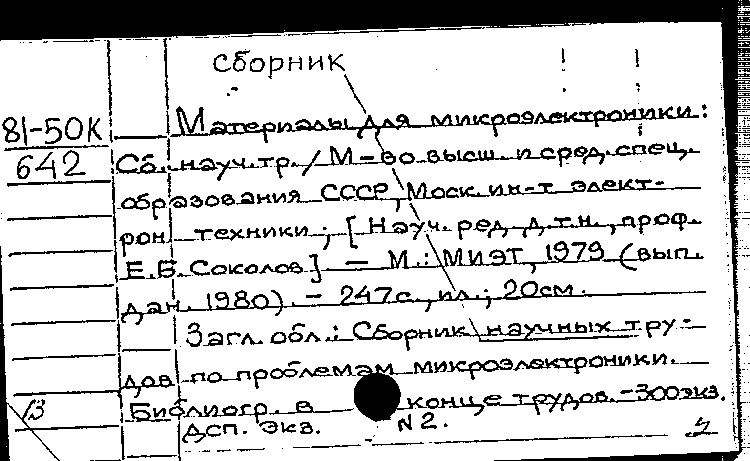 Сборник
81-50К
642
Материалы для микроэлектроники:
Сб. науч. тр. / М-во высш. и сред. спец.
образования СССР, Моск. ин-т элект-
рон. техники; [Науч. ред. д.т.н., проф.
Е.Б. Соколов]. – М.: МИЭТ, 1979 (вып.
дан. 1980). – 247с., ил.; 20см.
Загл. обл.: Сборник научных тру-
дов по проблемам микроэлектроники.
Библиогр. в конце трудов. – 300экз.
ДСП. Экз. N 2.